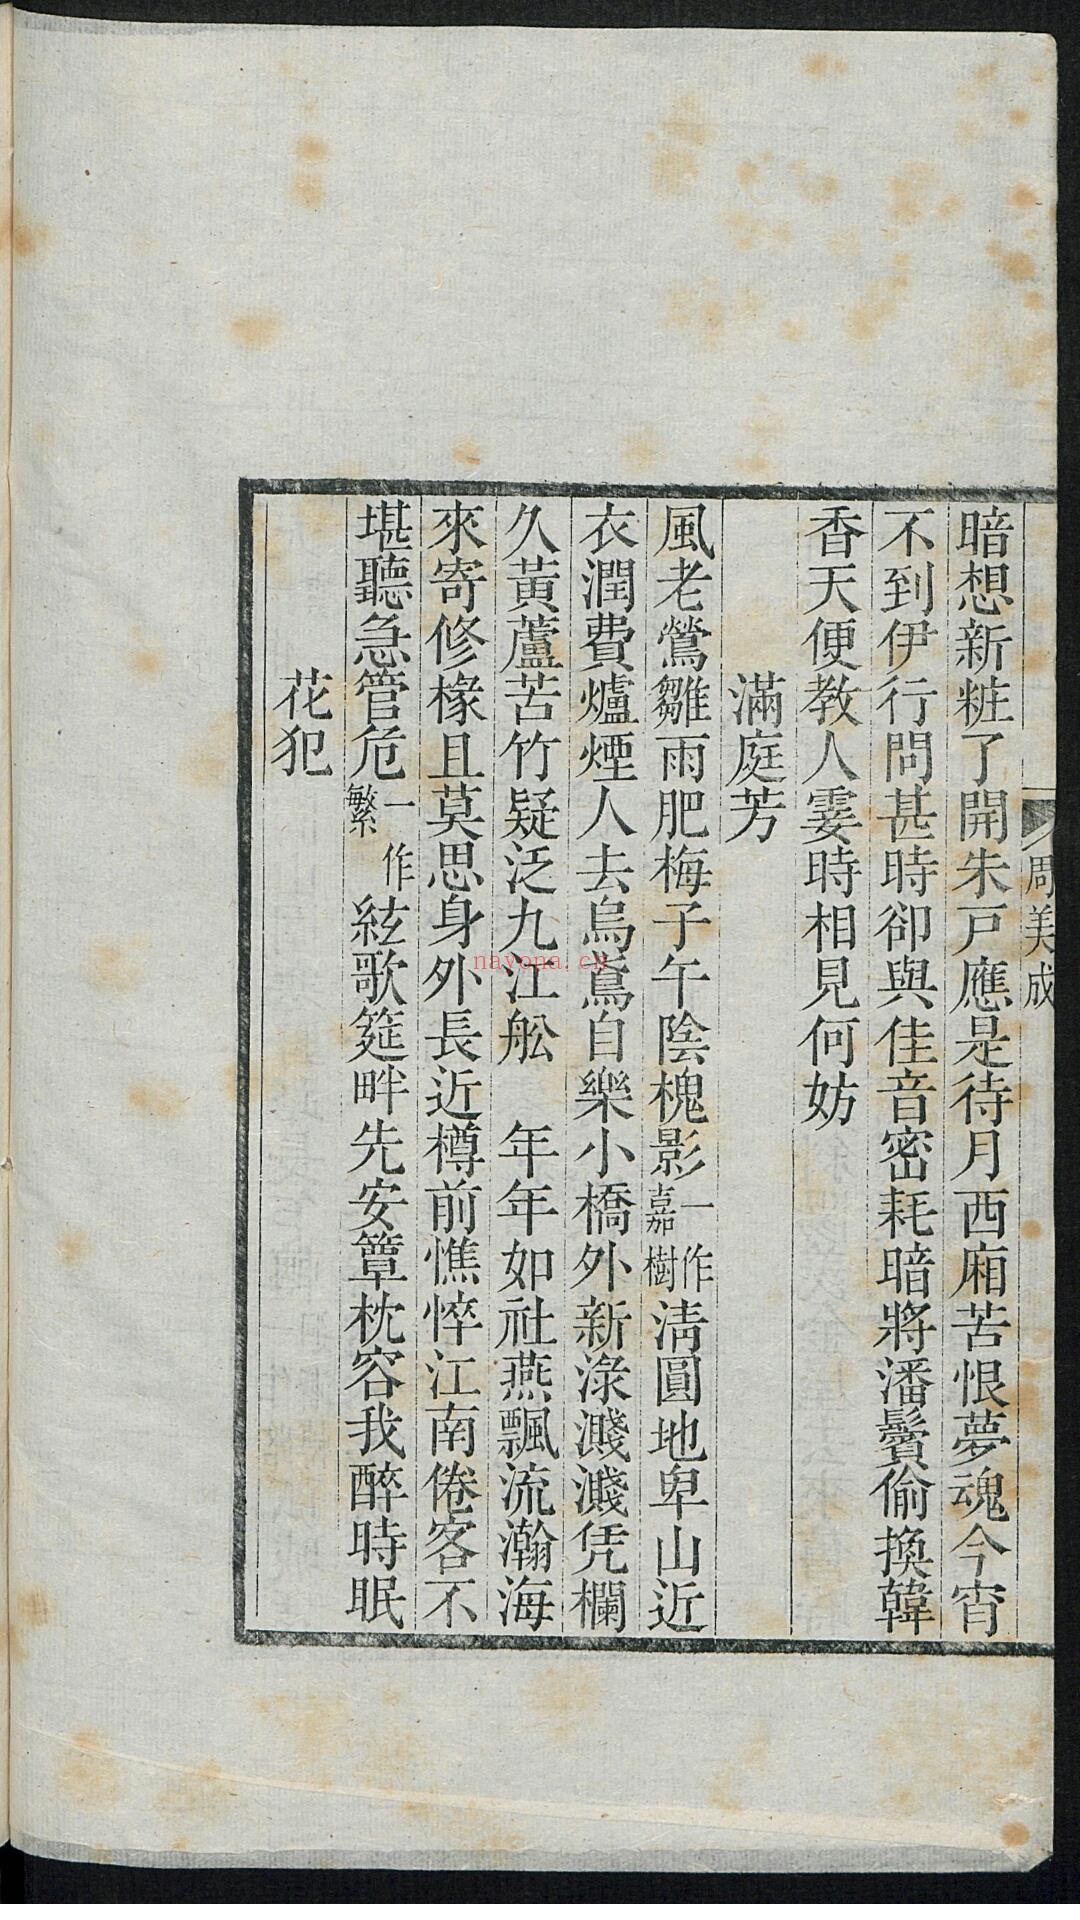 周美成
暗想新粧了開朱戸應是待月西廂苦恨夢魂今宵
不到伊行問甚時卻與佳音密耗暗將潘鬢偷換韓
香天便教人霎時相見何妨
滿庭芳
風老鶯雛雨肥梅子午陰槐影一作嘉樹清圓地卑山近
衣潤費爐煙人去烏鳶自樂小橋外新淥濺濺凭欄
久黃蘆苦竹疑泛九江舩　年年如社燕飄流瀚海
來寄修椽且莫思身外長近樽前憔悴江南倦客不
堪聽急管危一作繁絃歌筵畔先安簟枕容我醉時眠
花犯
nayona.cn